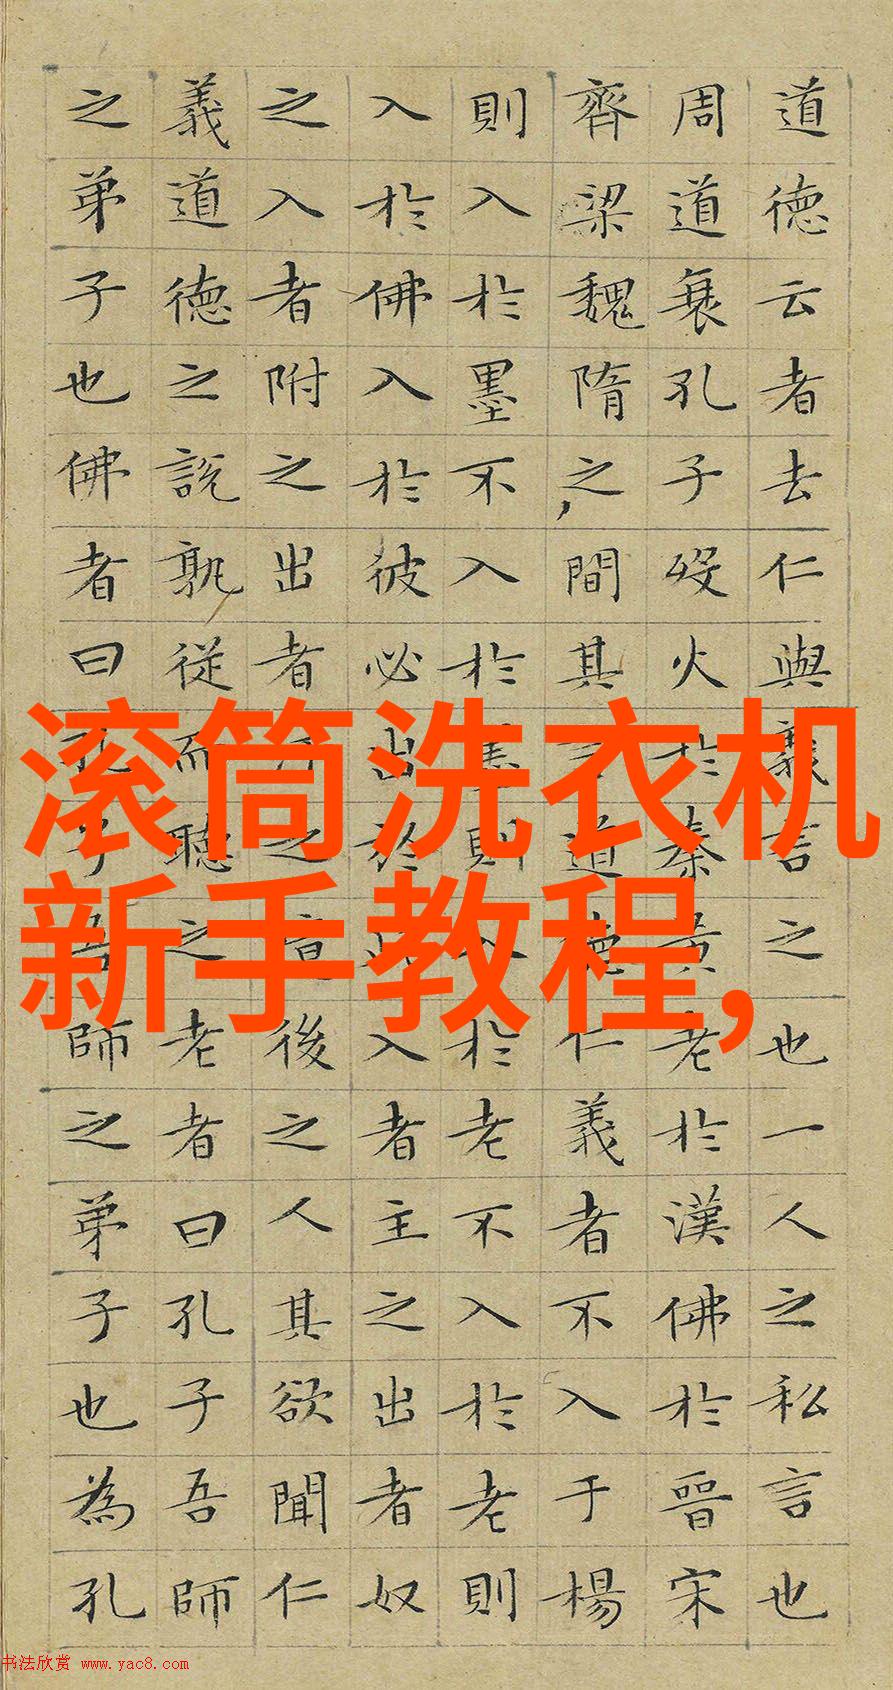 道德云者去仁與義言之也一人之私言也
周道衰孔子歿火於秦黃老於漢佛於晉宋
齊梁魏隋之間其道德仁義者不入于楊
則入於墨不入於墨則入於老不入於老則
入於佛入於彼必出於入者主之出者奴
之入者附之出者之後之人其欲聞仁
義道德之說孰從而聽之老者曰孔子吾師
之弟子也佛者曰孔子吾師之弟子也為孔
滚筒洗衣机
新手教程,
书法欣赏 www.yac8.com